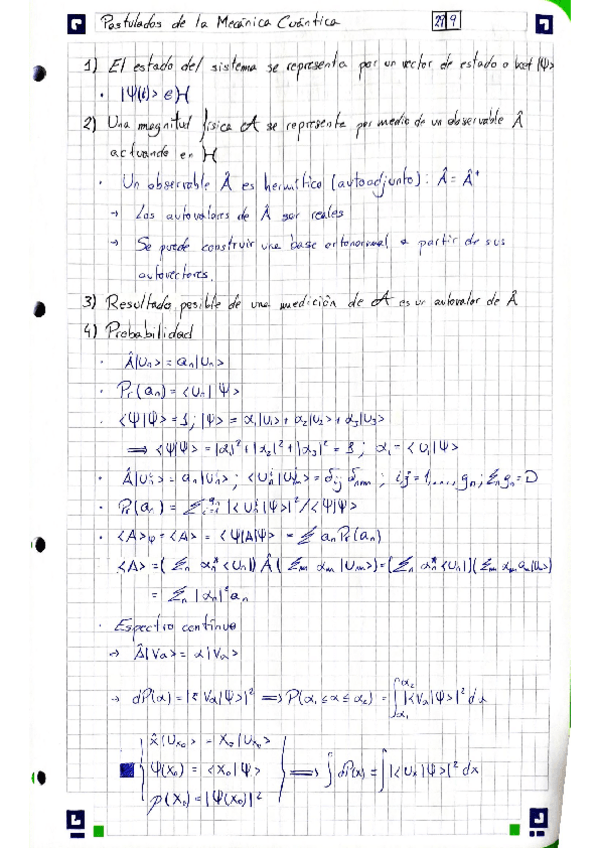 Postulados de la Mecánica Cuántica 29/9
1) El estado del sistema se representa por un vector de estado o ket |Ψ>
· |Ψ(t)> ∈ H
2) Una magnitud física A se representa por medio de un observable Â
actuando en H
· Un observable Â es hermítico (autoadjunto): Â = Â⁺
→ Los autovalores de Â son reales
→ Se puede construir una base ortonormal a partir de sus
autovectores.
3) Resultado posible de una medición de A es un autovalor de Â
4) Probabilidad
· Â|Uₙ> = aₙ|Uₙ>
· Pr(aₙ) = <Uₙ|Ψ>
· <Ψ|Ψ> = 1 ; |Ψ> = α₁|U₁> + α₂|U₂> + α₃|U₃>
⟹ <Ψ|Ψ> = |α₁|² + |α₂|² + |α₃|² = 1 ; α₁ = <U₁|Ψ>
· Â|Uₙⁱ> = aₙ|Uₙⁱ> ; <Uₙⁱ|Uₘʲ> = δᵢⱼ δₙₘ ; i,j = 1,...,gₙ ; Σₙ gₙ = D
· Pr(aₙ) = Σᵢ₌₁^gₙ |<Uₙⁱ|Ψ>|² / <Ψ|Ψ>
· <A>φ = <A> = <Ψ|A|Ψ> = Σ aₙ Pr(aₙ)
<A> = (Σₙ αₙ* <Uₙ|) Â (Σₘ αₘ |Uₘ>) = (Σₙ αₙ* <Uₙ|)(Σₘ αₘ aₘ|Uₘ>)
= Σₙ |αₙ|² aₙ
· Espectro continuo
→ Â|Vα> = α|Vα>
→ dP(α) = |<Vα|Ψ>|² ⟹ P(α₁ ≤ α ≤ α₂) = ∫_α₁^α₂ |<Vα|Ψ>|² dα
x̂|Uₓ₀> = X₀|Uₓ₀>
Ψ(X₀) = <X₀|Ψ> ⟹ ∫dP(x) = ∫|<Uₓ|Ψ>|² dx
ρ(X₀) = |Ψ(X₀)|²